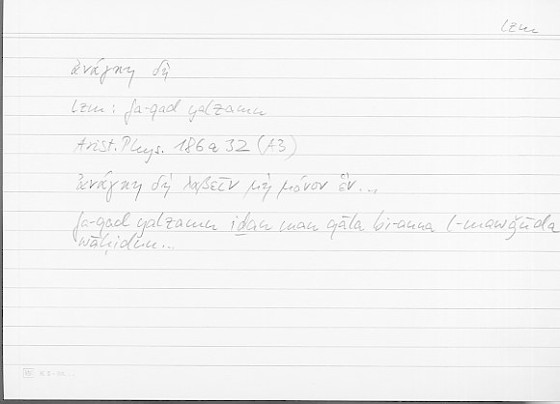 lzm
ἀνάγκη δή
lzm: fa-qad yalzamu
Arist. Phys. 186a32 (A3)
ἀνάγκη δὴ λαβεῖν μὴ μόνον ἓν...
fa-qad yalzamu iḏan man qāla bi-anna l-mawǧūda
wāḥidun...